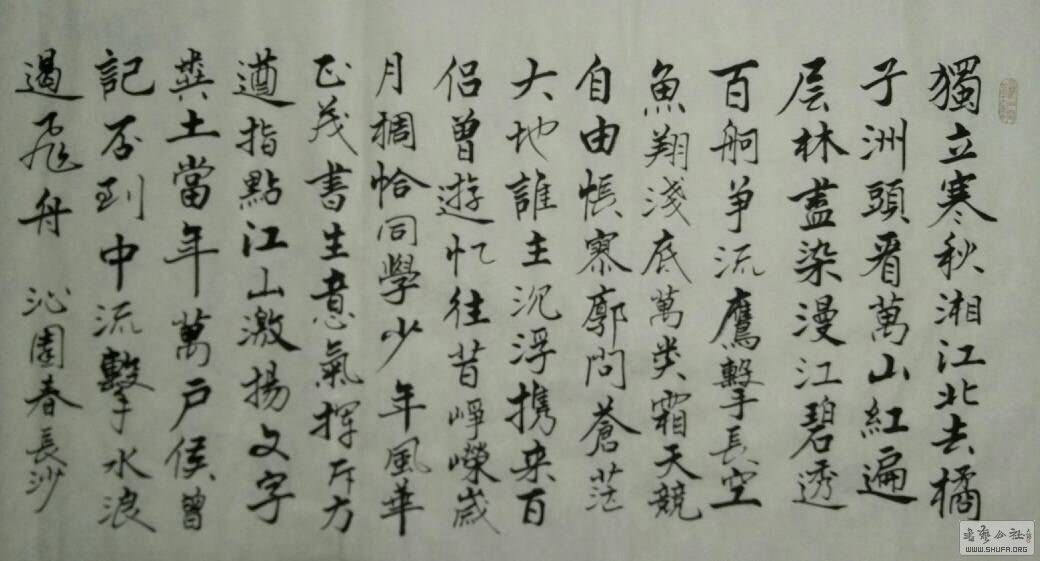 獨立寒秋湘江北去橘
子洲頭看萬山紅遍
层林盡染漫江碧透
百舸争流鷹擊長空
魚翔淺底萬类霜天競
自由悵寥廓問蒼茫
大地誰主沉浮携来百
侣曾遊忆往昔崢嶸歲
月稠恰同學少年風華
正茂書生意氣揮斥方
遒指點江山激揚文字
糞土當年萬戸侯曾
記否到中流擊水浪
遏飛舟 沁園春長沙
書藝公社
WWW.SHUFA.ORG